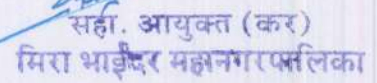 सहा. आयुक्त (कर)
मिरा भाईंदर महानगरपालिका